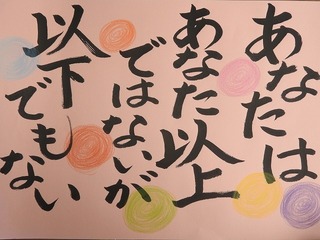 あなたは
あなた以上
ではないが
以下でもない